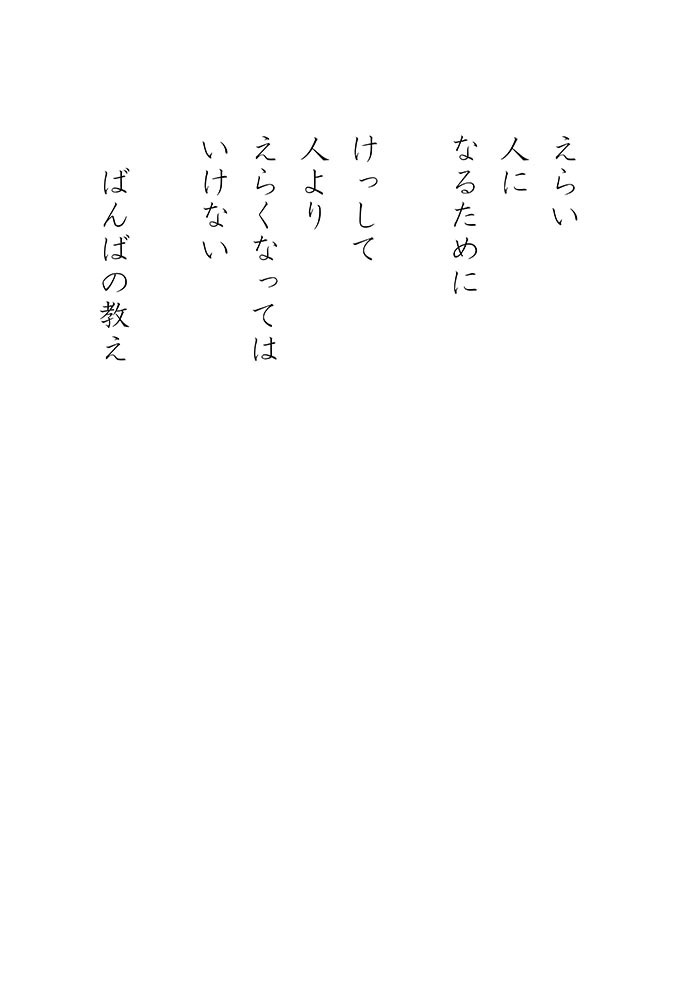 えらい
人に
なるために
けっして
人より
えらくなっては
いけない
ばんばの教え